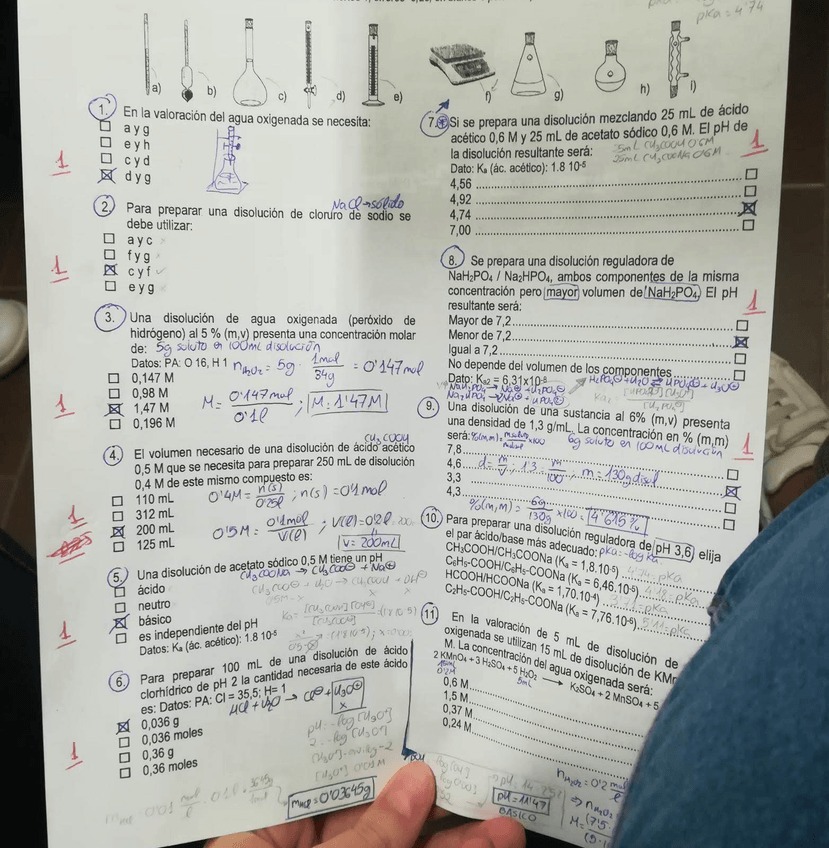 pKa = 4'74
a)
b)
c)
d)
e)
f)
g)
h)
i)
1. En la valoración del agua oxigenada se necesita:
a y g
e y h
c y d
d y g
1
2. Para preparar una disolución de cloruro de sodio se
NaCl → sólido
debe utilizar:
a y c
f y g
c y f
e y g
1
3. Una disolución de agua oxigenada (peróxido de
hidrógeno) al 5 % (m,v) presenta una concentración molar
de: 5g soluto en 100mL disolución
Datos: PA: O 16, H 1
nH2O2 = 5g · 1mol / 34g = 0'147mol
0,147 M
0,98 M
1,47 M
0,196 M
M = 0'147mol / 0'1l ; M = 1'47M
1
CH3COOH
4. El volumen necesario de una disolución de ácido acético
0,5 M que se necesita para preparar 250 mL de disolución
0,4 M de este mismo compuesto es:
110 mL
312 mL
200 mL
125 mL
0'4M = n(s) / 0'25l ; n(s) = 0'1mol
0'5M = 0'1mol / V(l) ; V(l) = 0'2l
V = 200mL
1
5. Una disolución de acetato sódico 0,5 M tiene un pH
CH3COONa → CH3COO⊖ + Na⊕
ácido
neutro
básico
es independiente del pH
Datos: Ka (ác. acético): 1.8 10-5
1
6. Para preparar 100 mL de una disolución de ácido
clorhídrico de pH 2 la cantidad necesaria de este ácido
es: Datos: PA: Cl = 35,5; H= 1
HCl + H2O → Cl⊖ + H3O⊕
x
0,036 g
0,036 moles
0,36 g
0,36 moles
pH = -log [H3O+]
2 = -log [H3O+]
mHCl = 0'03645g
1
7. Si se prepara una disolución mezclando 25 mL de ácido
acético 0,6 M y 25 mL de acetato sódico 0,6 M. El pH de
la disolución resultante será:
25mL CH3COOH 0'6M
25mL CH3COONa 0'6M
Dato: Ka (ác. acético): 1.8 10-5
4,56
4,92
4,74
7,00
1
8. Se prepara una disolución reguladora de
NaH2PO4 / Na2HPO4, ambos componentes de la misma
concentración pero mayor volumen de NaH2PO4. El pH
resultante será:
Mayor de 7,2
Menor de 7,2
Igual a 7,2
No depende del volumen de los componentes
Dato: Ka2 = 6,31x10-8
1
9. Una disolución de una sustancia al 6% (m,v) presenta
una densidad de 1,3 g/mL. La concentración en % (m,m)
será: 6g soluto en 100mL disolución
7,8
4,6
3,3
4,3
d = m / V ; 1'3 = m / 100 ; m = 130g disol
%(m,m) = 6g / 130g x 100 = 4'615%
1
10. Para preparar una disolución reguladora de pH 3,6) elija
el par ácido/base más adecuado: pKa = -log Ka
CH3COOH/CH3COONa (Ka = 1,8.10-5) 4'74 = pKa
C6H5-COOH/C6H5-COONa (Ka = 6,46.10-5) 4'18 = pKa
HCOOH/HCOONa (Ka = 1,70.10-4)
C2H5-COOH/C2H5-COONa (Ka = 7,76.10-6) 5'11 = pKa
11. En la valoración de 5 mL de disolución de
oxigenada se utilizan 15 mL de disolución de KMn
M. La concentración del agua oxigenada será:
2 KMnO4 + 3 H2SO4 + 5 H2O2 → K2SO4 + 2 MnSO4 + 5
15mL
0'2M
5mL
0,6 M
1,5 M
0,37 M
0,24 M
pH = 11'47
BÁSICO